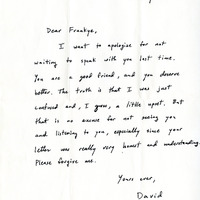 Dear Frankye,
I want to apologize for not
waiting to speak with you last time.
You are a good friend, and you deserve
better. The truth is that I was just
confused and, I guess, a little upset. But
that is no excuse for not seeing you
and listening to you, especially since your
letter was really very honest and understanding.
Please forgive me.
Yours ever,
David